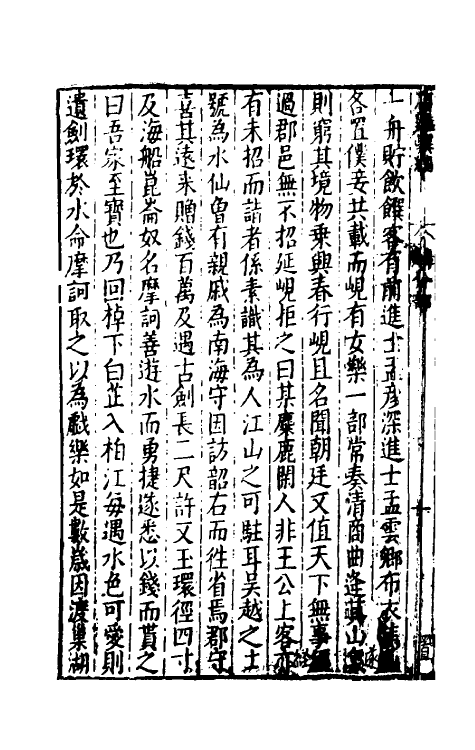 一舟貯飲饌客有前進士孟彥深進士孟雲卿布衣焦
各置僕妾共載而峴有女樂一部常奏清商曲逢其山泉
則窮其境物乘興春行峴且名聞朝廷又值天下無事經
過郡邑無不招延峴拒之曰某麋鹿閑人非王公上客亦
有未招而詣者係素識其為人江山之可駐耳吳越之士
號為水仙曾有親戚為南海守因訪韶右而徃省焉郡守
喜其遠來贈錢百萬及遇古劍長二尺許又玉環徑四寸
及海船崑崙奴名摩訶善遊水而勇捷遂悉以錢而貰之
曰吾家至寶也乃回棹下白芷入柏江每遇水色可愛則
遺劍環於水命摩訶取之以為戲樂如是數歲因渡巢湖